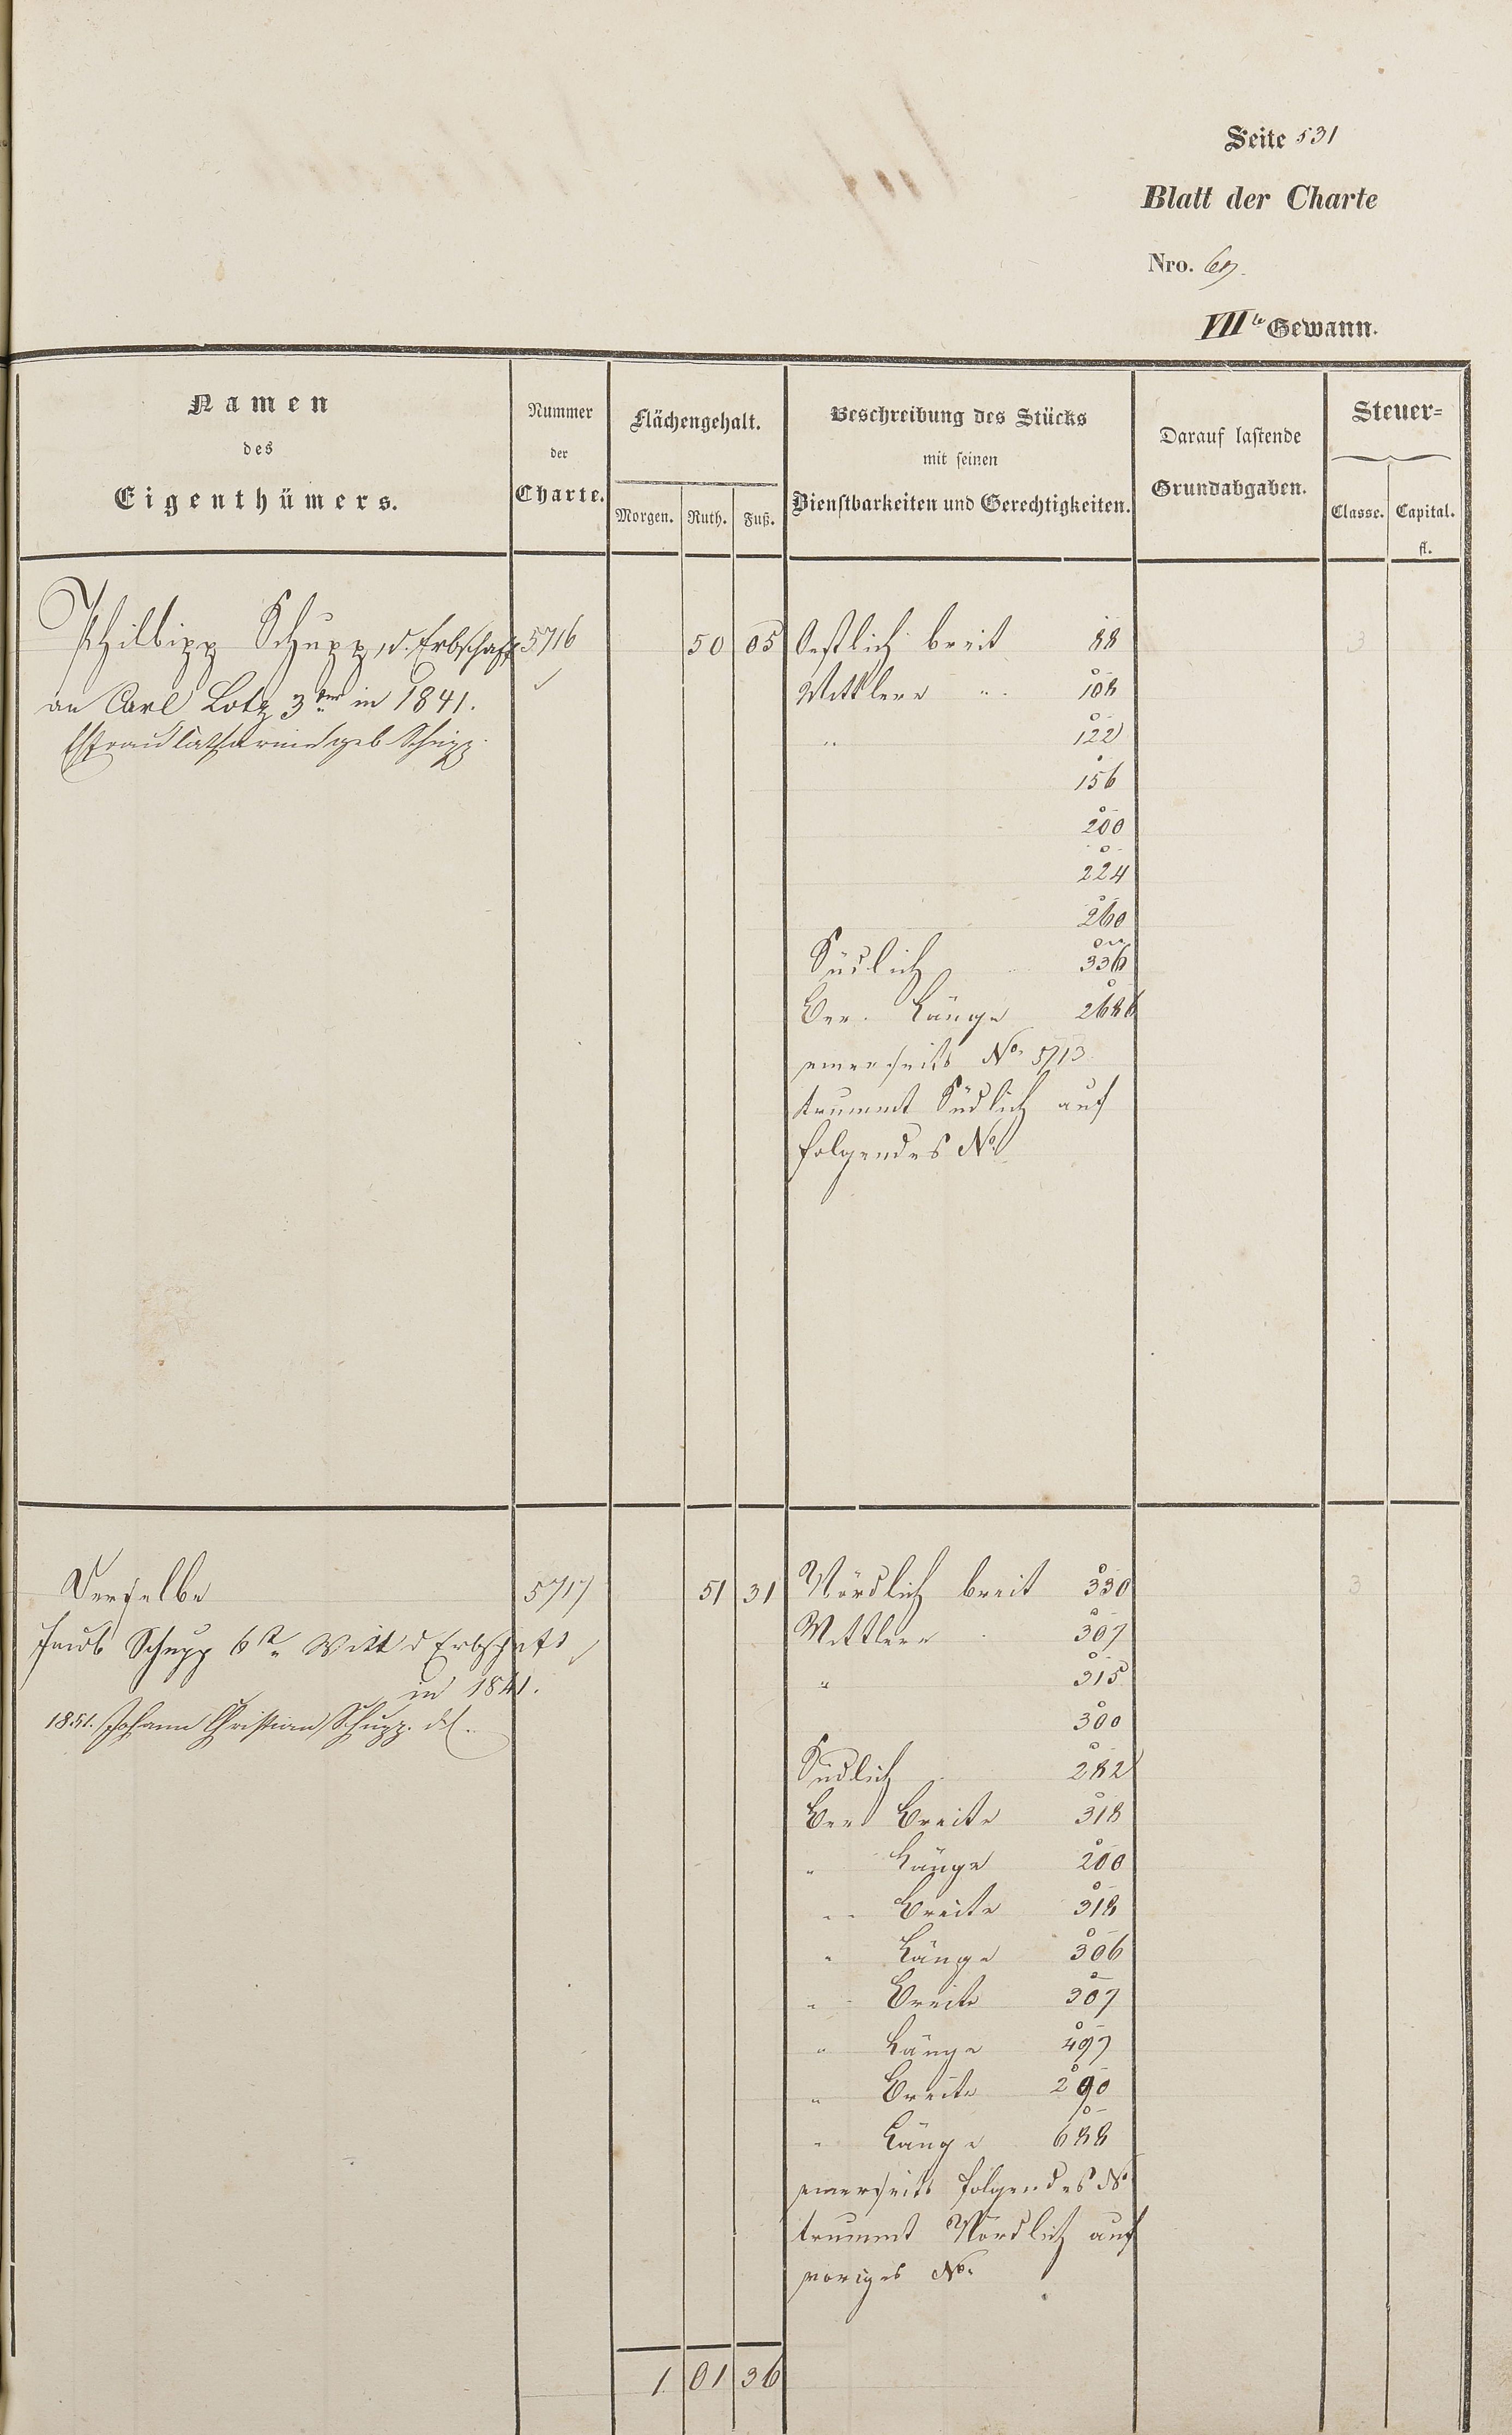 Seite 531
Blatt der Charte
Nro. 67.
VII te Gewann.
Namen
des
Eigenthümers.
Nummer
der
Charte.
Flächengehalt.
Morgen. Ruth. Fuß.
Beschreibung des Stücks
mit seinen
Dienstbarkeiten und Gerechtigkeiten.
Darauf lastende
Grundabgaben.
Steuer-
Classe. Capital.
fl.
Philipp Schupp, d. Erbschaft 5716 50 05 Oestlich breit 88 3
an Carl Lotz 3ter in 1841. Mittlere " 108
Ehefrau Catharina geb Schupp. " 122
156
200
224
260
Südlich 336
Ber. Länge 2686
einerseits No. 5713
trummt Südlich auf
folgendes No
Derselbe 5717 51 31 Nördlich breit 330 3
Jacob Schupp 6r Witt d Erbschaft Mittlere 307
in 1841. " 315
1851. Johann Christian Schupp. dsl. 300
Südlich 282
Ber Breite 318
" Länge 200
" Breite 318
" Länge 306
" Breite 307
" Länge 497
" Breite 290
" Länge 688
einerseits folgendes No
trummt Nördlich auf
voriges No.
1 01 36